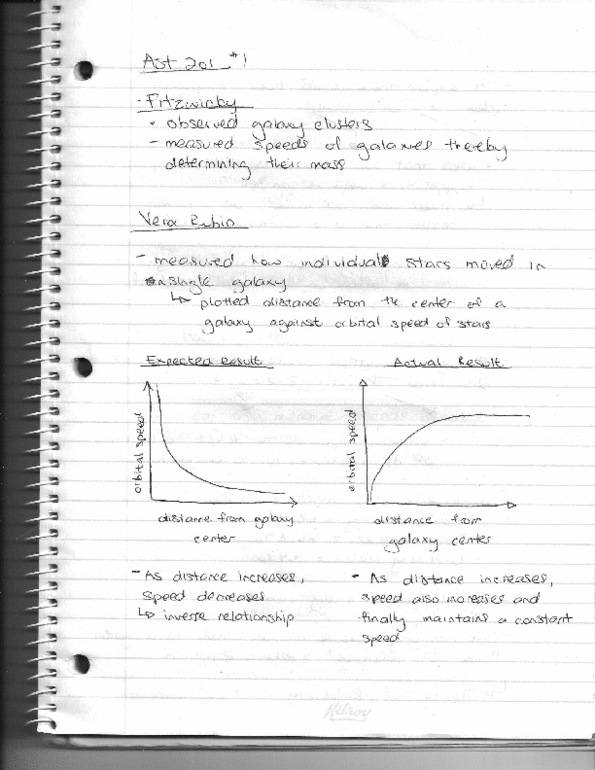 Ast 201 #1
- Fitzwicky
• observed galaxy clusters
- measured speeds of galaxies thereby
determining their mass
Vera Rubin
- measured how individual stars moved in
a single galaxy
↳ plotted distance from the center of a
galaxy against orbital speed of stars
Expected Result
Actual Result
orbital speed
distance from galaxy
center
orbital speed
distance from
galaxy center
- As distance increases,
speed decreases
↳ inverse relationship
- As distance increases,
speed also increases and
finally maintains a constant
speed
Hilroy